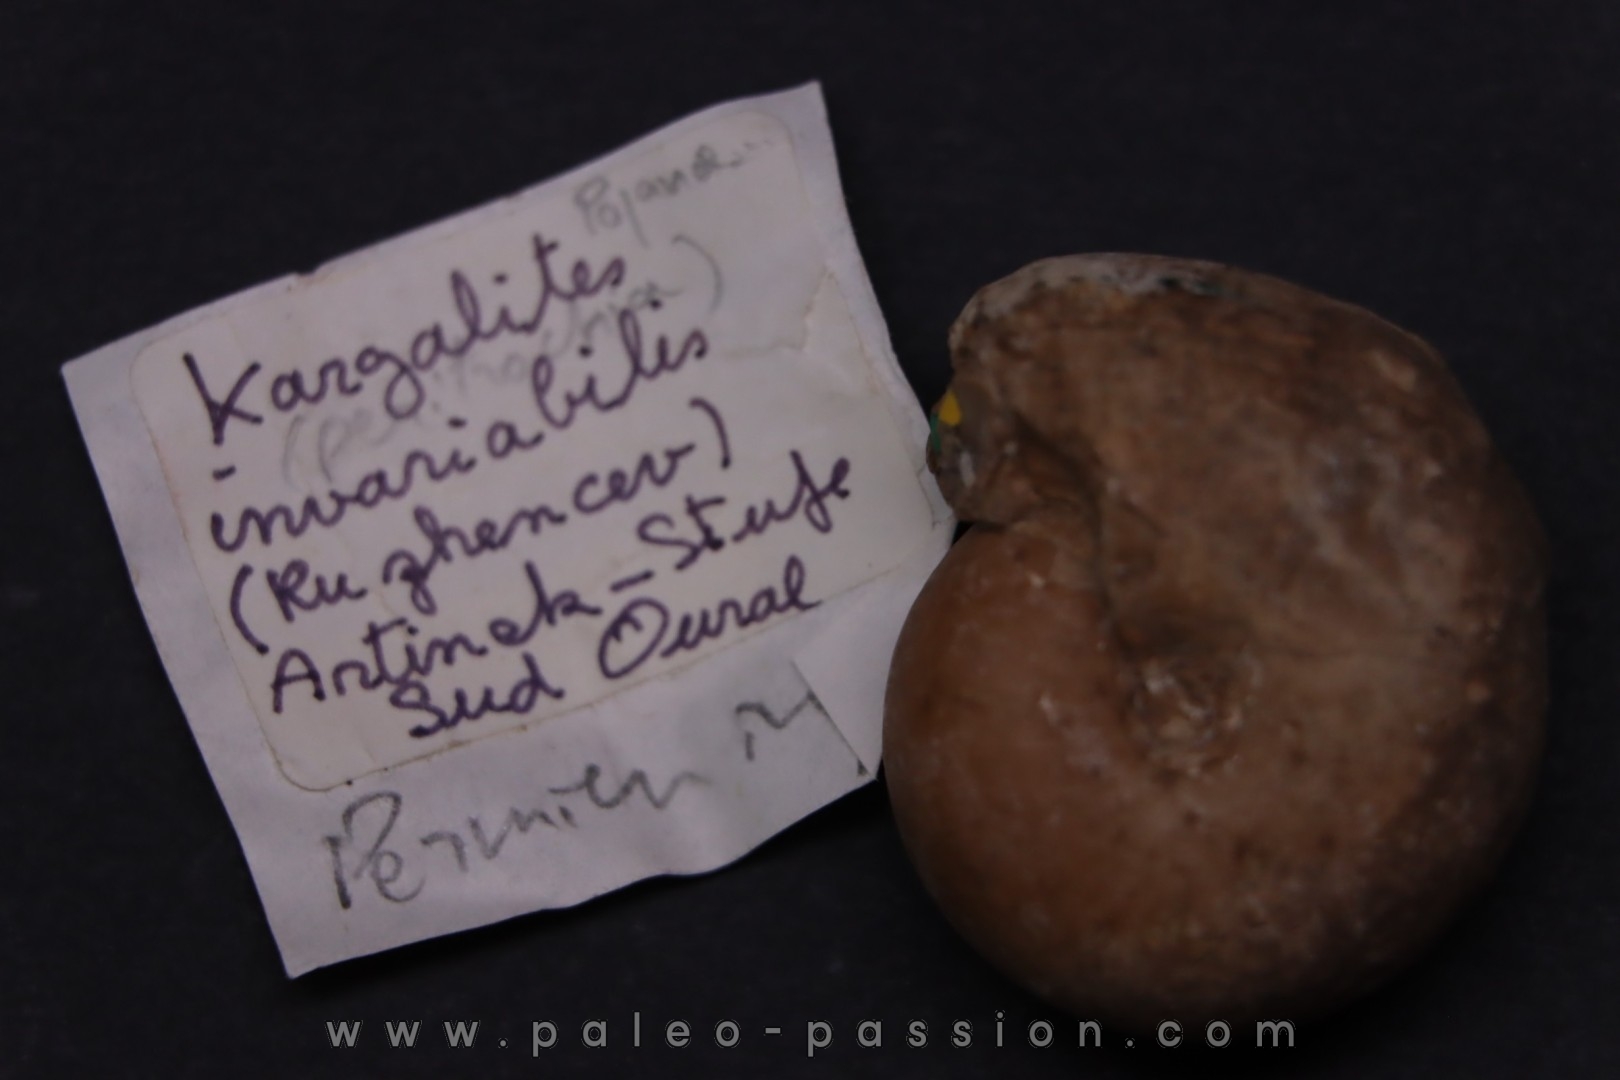 Kargalites
invariabilis
(Ruzhencev)
Artinsk-Stufe
Sud Oural
Permien M
www.paleo-passion.com